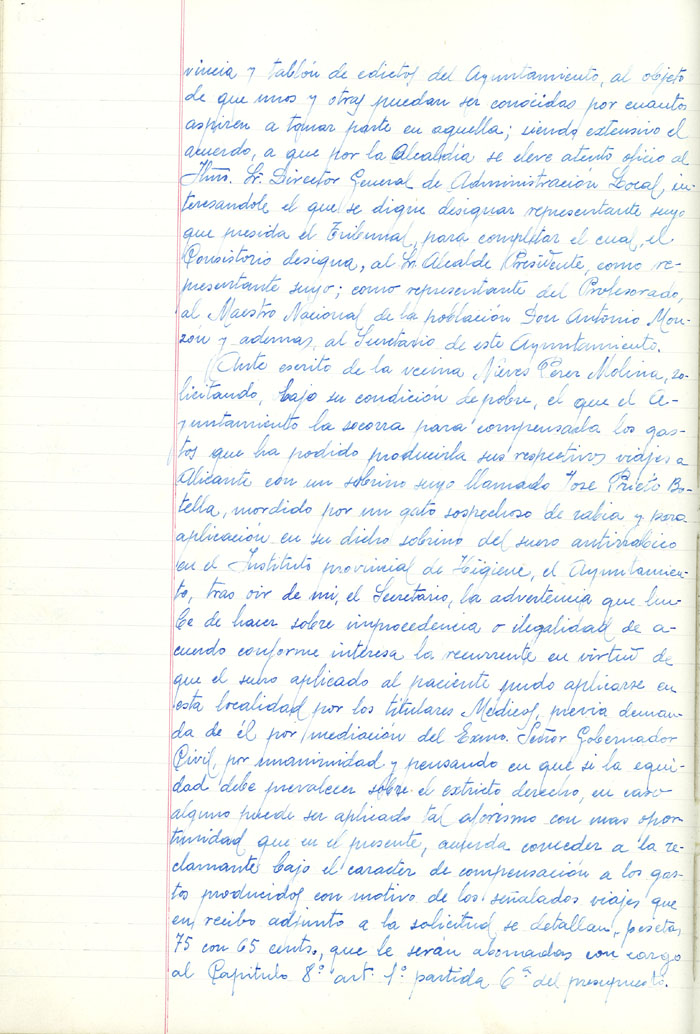 vincia y tablón de edictos del Ayuntamiento, al objeto
de que unos y otras puedan ser conocidas por cuantos
aspiren a tomar parte en aquella; siendo extensivo el
acuerdo, a que por la Alcaldía se eleve atento oficio al
Iltmo. Sr. Director General de Administración Local, in-
teresandole el que se digne designar representante suyo
que presida el Tribunal, para completar el cual, el
Consistorio designa, al Sr. Alcalde Presidente, como re-
presentante suyo; como representante del Profesorado,
al Maestro Nacional de la población Don Antonio Mon-
zón y ademas, al Secretario de este Ayuntamiento.
Ante escrito de la vecina Nieves Perez Molina, so-
licitando, bajo su condición de pobre, el que el A-
yuntamiento la socorra para compensarla los gas-
tos que ha podido producirla sus respectivos viajes a
Alicante con un sobrino suyo llamado José Prieto Bo-
tella, mordido por un gato sospechoso de rabia y para
aplicación en su dicho sobrino del suero antirrabico
en el Instituto provincial de Higiene, el Ayuntamien-
to, tras oir de mi, el Secretario, la advertencia que hu-
be de hacer sobre improcedencia o ilegalidad de a-
cuerdo conforme interesa la recurrente en virtud de
que el suero aplicado al paciente pudo aplicarse en
esta localidad por los titulares Medicos, previa deman-
da de él por mediación del Exmo. Señor Gobernador
Civil, por unanimidad y pensando en que si la equi-
dad debe prevalecer sobre el extricto derecho, en caso
alguno puede ser aplicado tal aforismo con mas opor-
tunidad que en el presente, acuerda conceder a la re-
clamante bajo el caracter de compensación a los gas-
tos producidos con motivo de los señalados viajes que
en recibo adjunto a la solicitud se detallan, pesetas
75 con 65 cents., que le serán abonadas con cargo
al Capitulo 8º art. 1º partida 6ª del presupuesto.